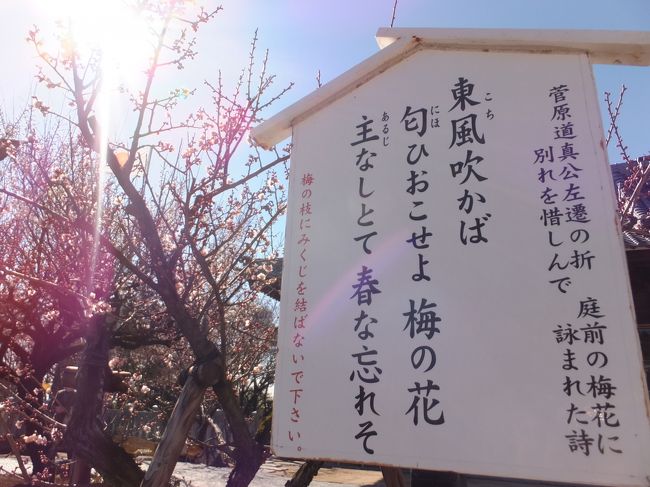 菅原道真公左遷の折
別れを惜しんで
庭前の梅花に
詠まれた詩
東風吹かば
こち
匂ひおこせよ 梅の花
にほ
主なしとて 春な忘れそ
あるじ
梅の枝にみくじを結ばないで下さい。